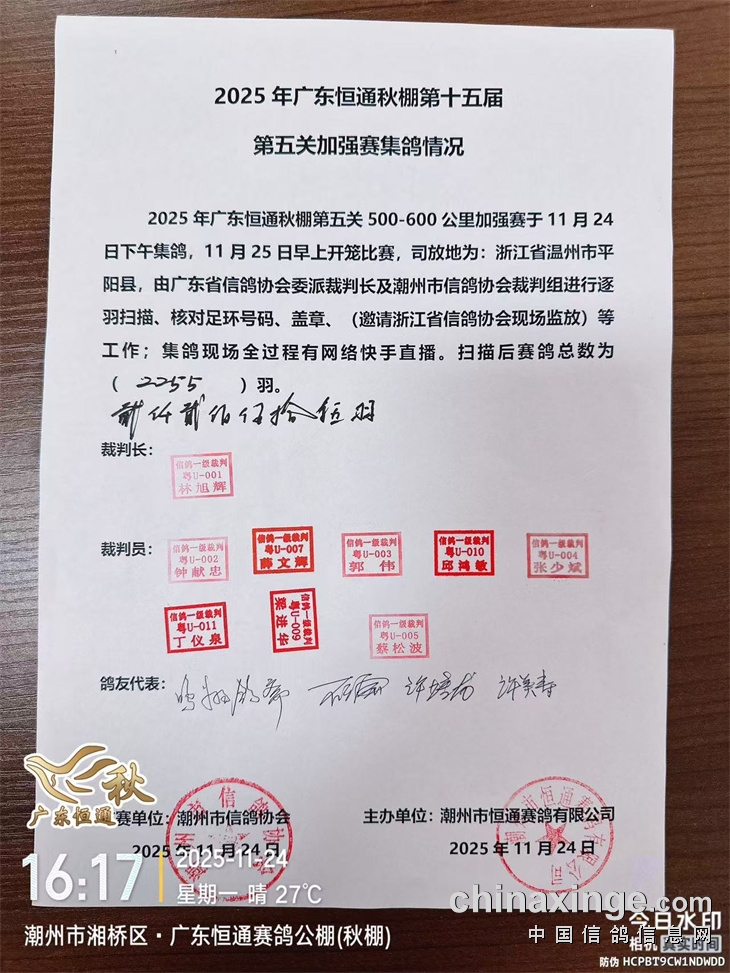 2025 年广东恒通秋棚第十五届
第五关加强赛集鸽情况
2025 年广东恒通秋棚第五关 500-600 公里加强赛于 11 月 24
日下午集鸽，11 月 25 日早上开笼比赛，司放地为：浙江省温州市平
阳县，由广东省信鸽协会委派裁判长及潮州市信鸽协会裁判组进行逐
羽扫描、核对足环号码、盖章、（邀请浙江省信鸽协会现场监放）等
工作；集鸽现场全过程有网络快手直播。扫描后赛鸽总数为
（ 2255 ）羽。
贰仟贰佰伍拾伍羽
裁判长：
信鸽一级裁判
粤U-001
林旭辉
裁判员：
信鸽一级裁判
粤U-002
钟献忠
信鸽一级裁判
粤U-007
薛文辉
信鸽一级裁判
粤U-003
郭 伟
信鸽一级裁判
粤U-010
邱鸿敏
信鸽一级裁判
粤U-004
张少斌
信鸽一级裁判
粤U-011
丁仪泉
信鸽一级裁判
粤U-009
梁进华
信鸽一级裁判
粤U-005
蔡松波
鸽友代表：
秋
广东恒通
赛单位：潮州市信鸽协会
2025 年 11 月 24 日
主办单位：潮州市恒通赛鸽有限公司
2025 年 11 月 24 日
16:17
2025-11-24
星期一 晴 27℃
潮州市湘桥区·广东恒通赛鸽公棚(秋棚)
chinaxinge.com
中国信鸽信息网
今日水印
相机 真实时间
防伪 HCPBT9CW1NDWDD